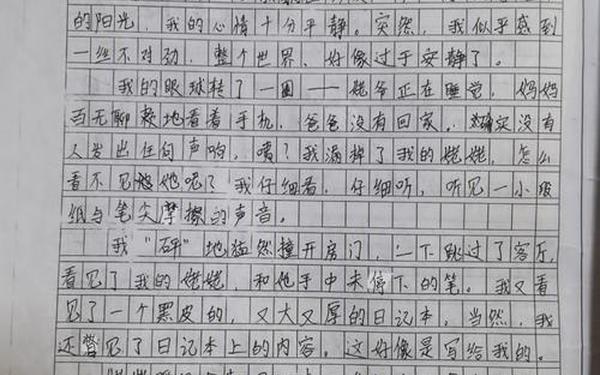 的阳光，我的心情十分平静。突然，我似乎感到
一丝不对劲，整个世界、好像过于安静了。
我的眼球转了一圈——姥爷正在睡觉，妈妈
百无聊赖地看着手机，爸爸没有回家，确实没有
人发出任何声响，嘖？我漏掉了我的姥姥，怎么
看不见她呢？我仔细看，仔细听，听见一小段
纸与笔尖摩擦的声音。
我“砰”地猛然撞开房门，一下跳过了客厅，
看见了我的姥姥，和他手中未停下的笔。我又看
见了一个黑皮的，又大又厚的日记本。当然，我
还瞥见了日记本上的内容。这好像是写给我的。